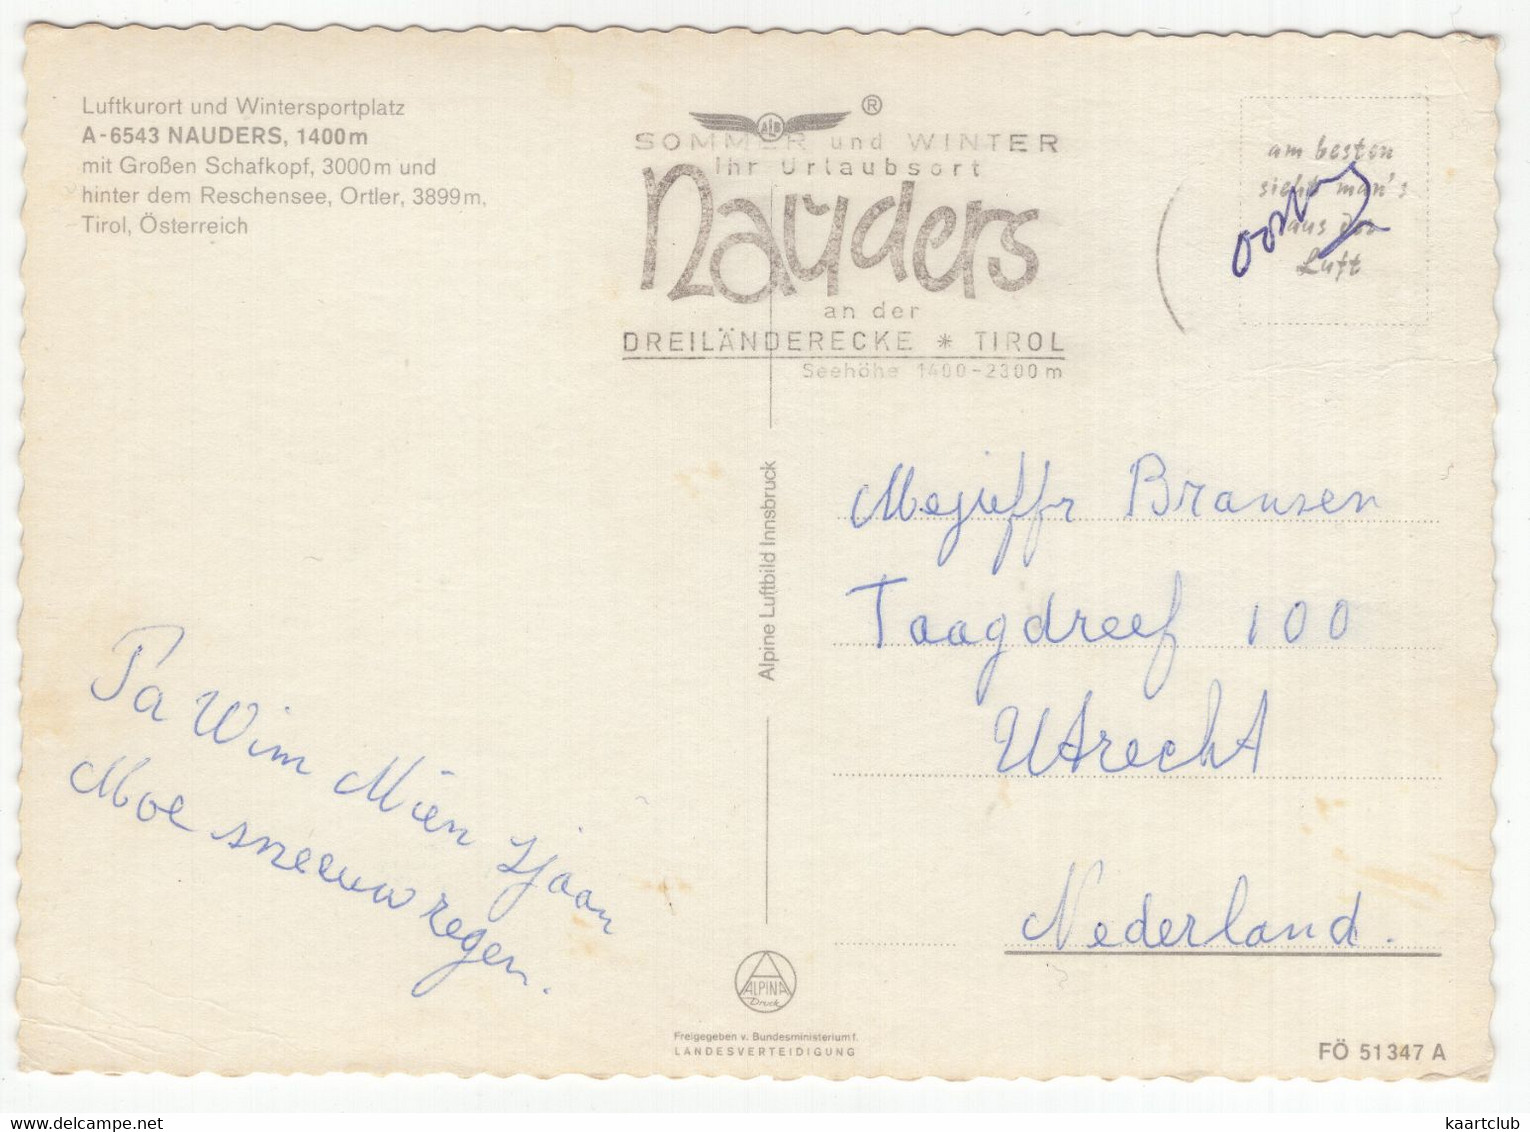 Luftkurort und Wintersportplatz
A-6543 NAUDERS, 1400m
mit Großen Schafkopf, 3000m und
hinter dem Reschensee, Ortler, 3899m,
Tirol, Österreich
ALB ®
SOMMER und WINTER
Ihr Urlaubsort
Nauders
an der
DREILÄNDERECKE * TIROL
Seehöhe 1400-2300 m
am besten
sieht man's
aus der
Luft
Alpine Luftbild Innsbruck
Mejuffr Bransen
Taagdreef 100
Utrecht
Nederland.
Pa Wim Mien Sjaan
Moe sneeuw regen.
ALPINA
Druck
Freigegeben v. Bundesministerium f.
LANDESVERTEIDIGUNG
FÖ 51347 A
kaartclub